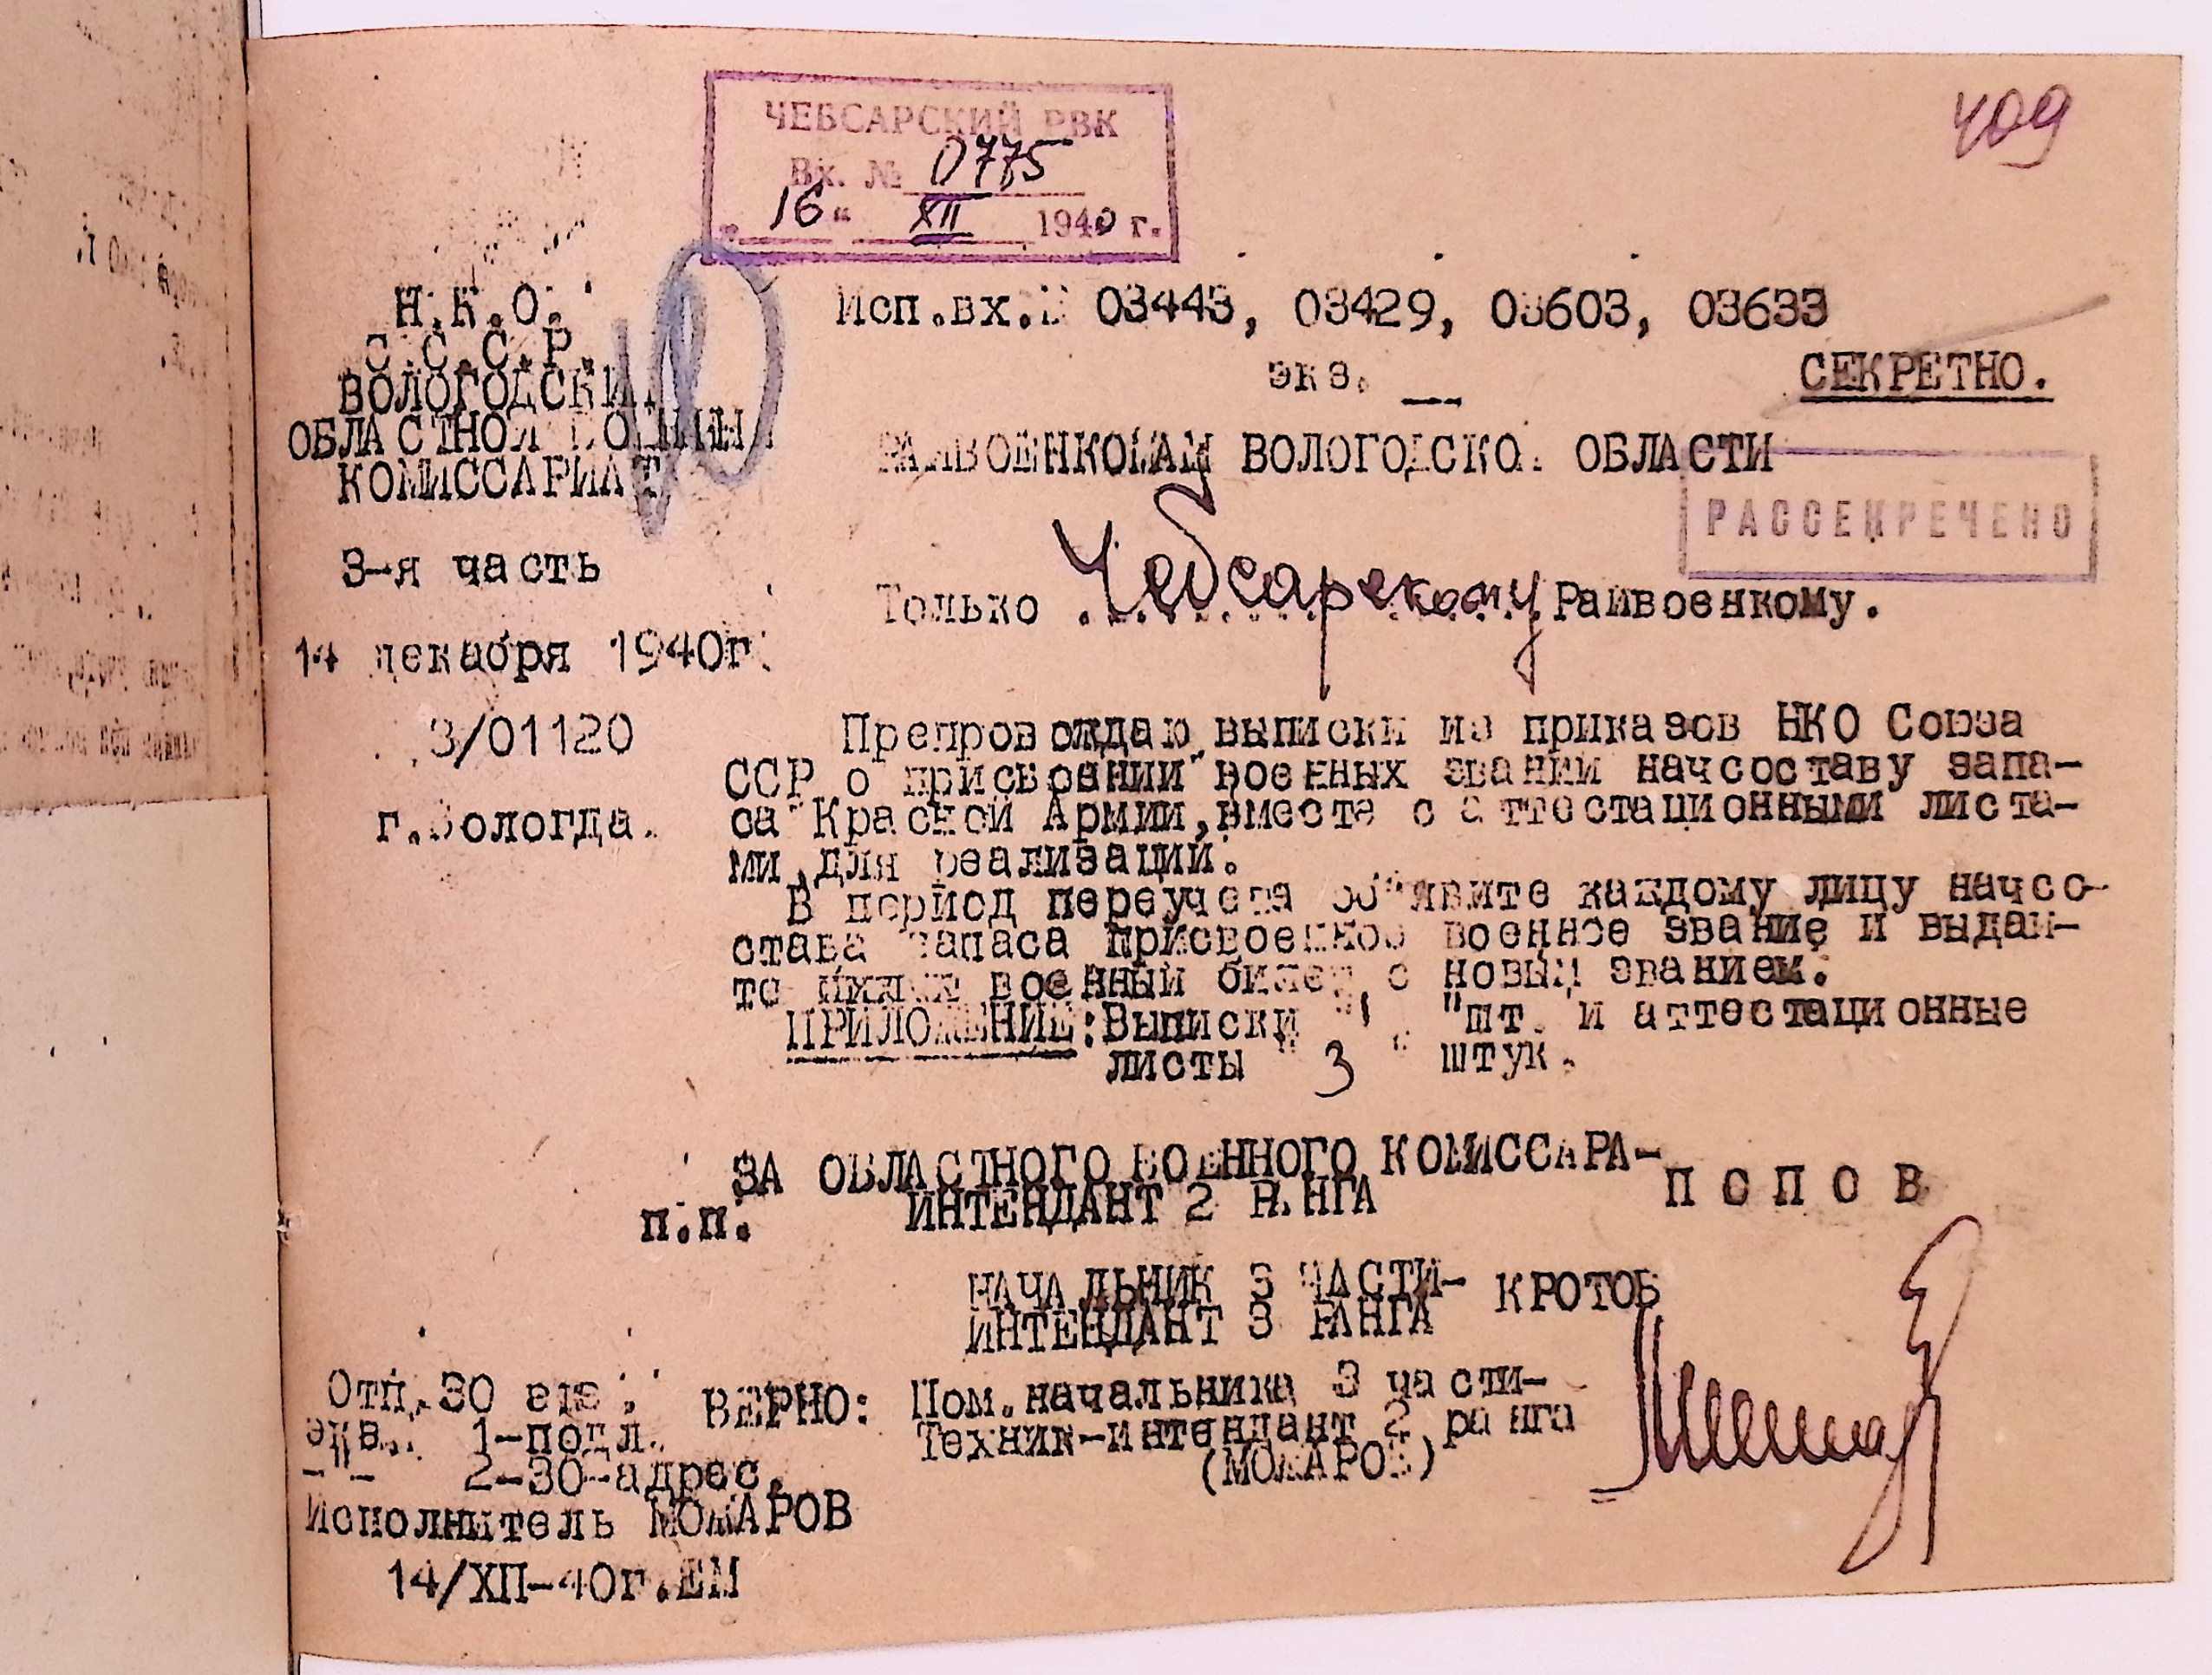 ЧЕБСАРСКИЙ РВК
Вх. № 0775
"16" XII 1940 г.
409
Н.К.О.
С.С.С.Р.
ВОЛОГОДСКИЙ
ОБЛАСТНОЙ ВОЕННЫЙ
КОМИССАРИАТ
3-я часть
14 декабря 1940г.
3/01120
г.Вологда.
Исп.вх.№ 03443, 03429, 03603, 03633
экз. __
СЕКРЕТНО.
РАЙВОЕНКОМАМ ВОЛОГОДСКОЙ ОБЛАСТИ
РАССЕКРЕЧЕНО
Только Чебсарскому Райвоенкому.
Препровождаю выписки из приказов НКО Союза
ССР о присвоении военных званий начсоставу запа-
са Красной Армии, вместе с аттестационными листа-
ми, для реализации.
В период переучета об"явите каждому лицу начсо-
става запаса присвоенное военное звание и выдай-
те военный билет с новым званием.
ПРИЛОЖЕНИЕ: Выписки " "шт. и аттестационные
листы " 3 " штук.
ЗА ОБЛАСТНОГО ВОЕННОГО КОМИССАРА-
ИНТЕНДАНТ 2 РАНГА П О П О В
п.п.
НАЧАЛЬНИК 3 ЧАСТИ-
ИНТЕНДАНТ 3 РАНГА КРОТОВ
ВЕРНО: Пом.начальника 3 части-
Техник-интендант 2 ранга
(МОЖАРОВ)
Отп. 30 экз.
экз. 1-подл.
-"- 2-30-адрес.
Исполнитель МОЖАРОВ
14/ХП-40г.ЕМ